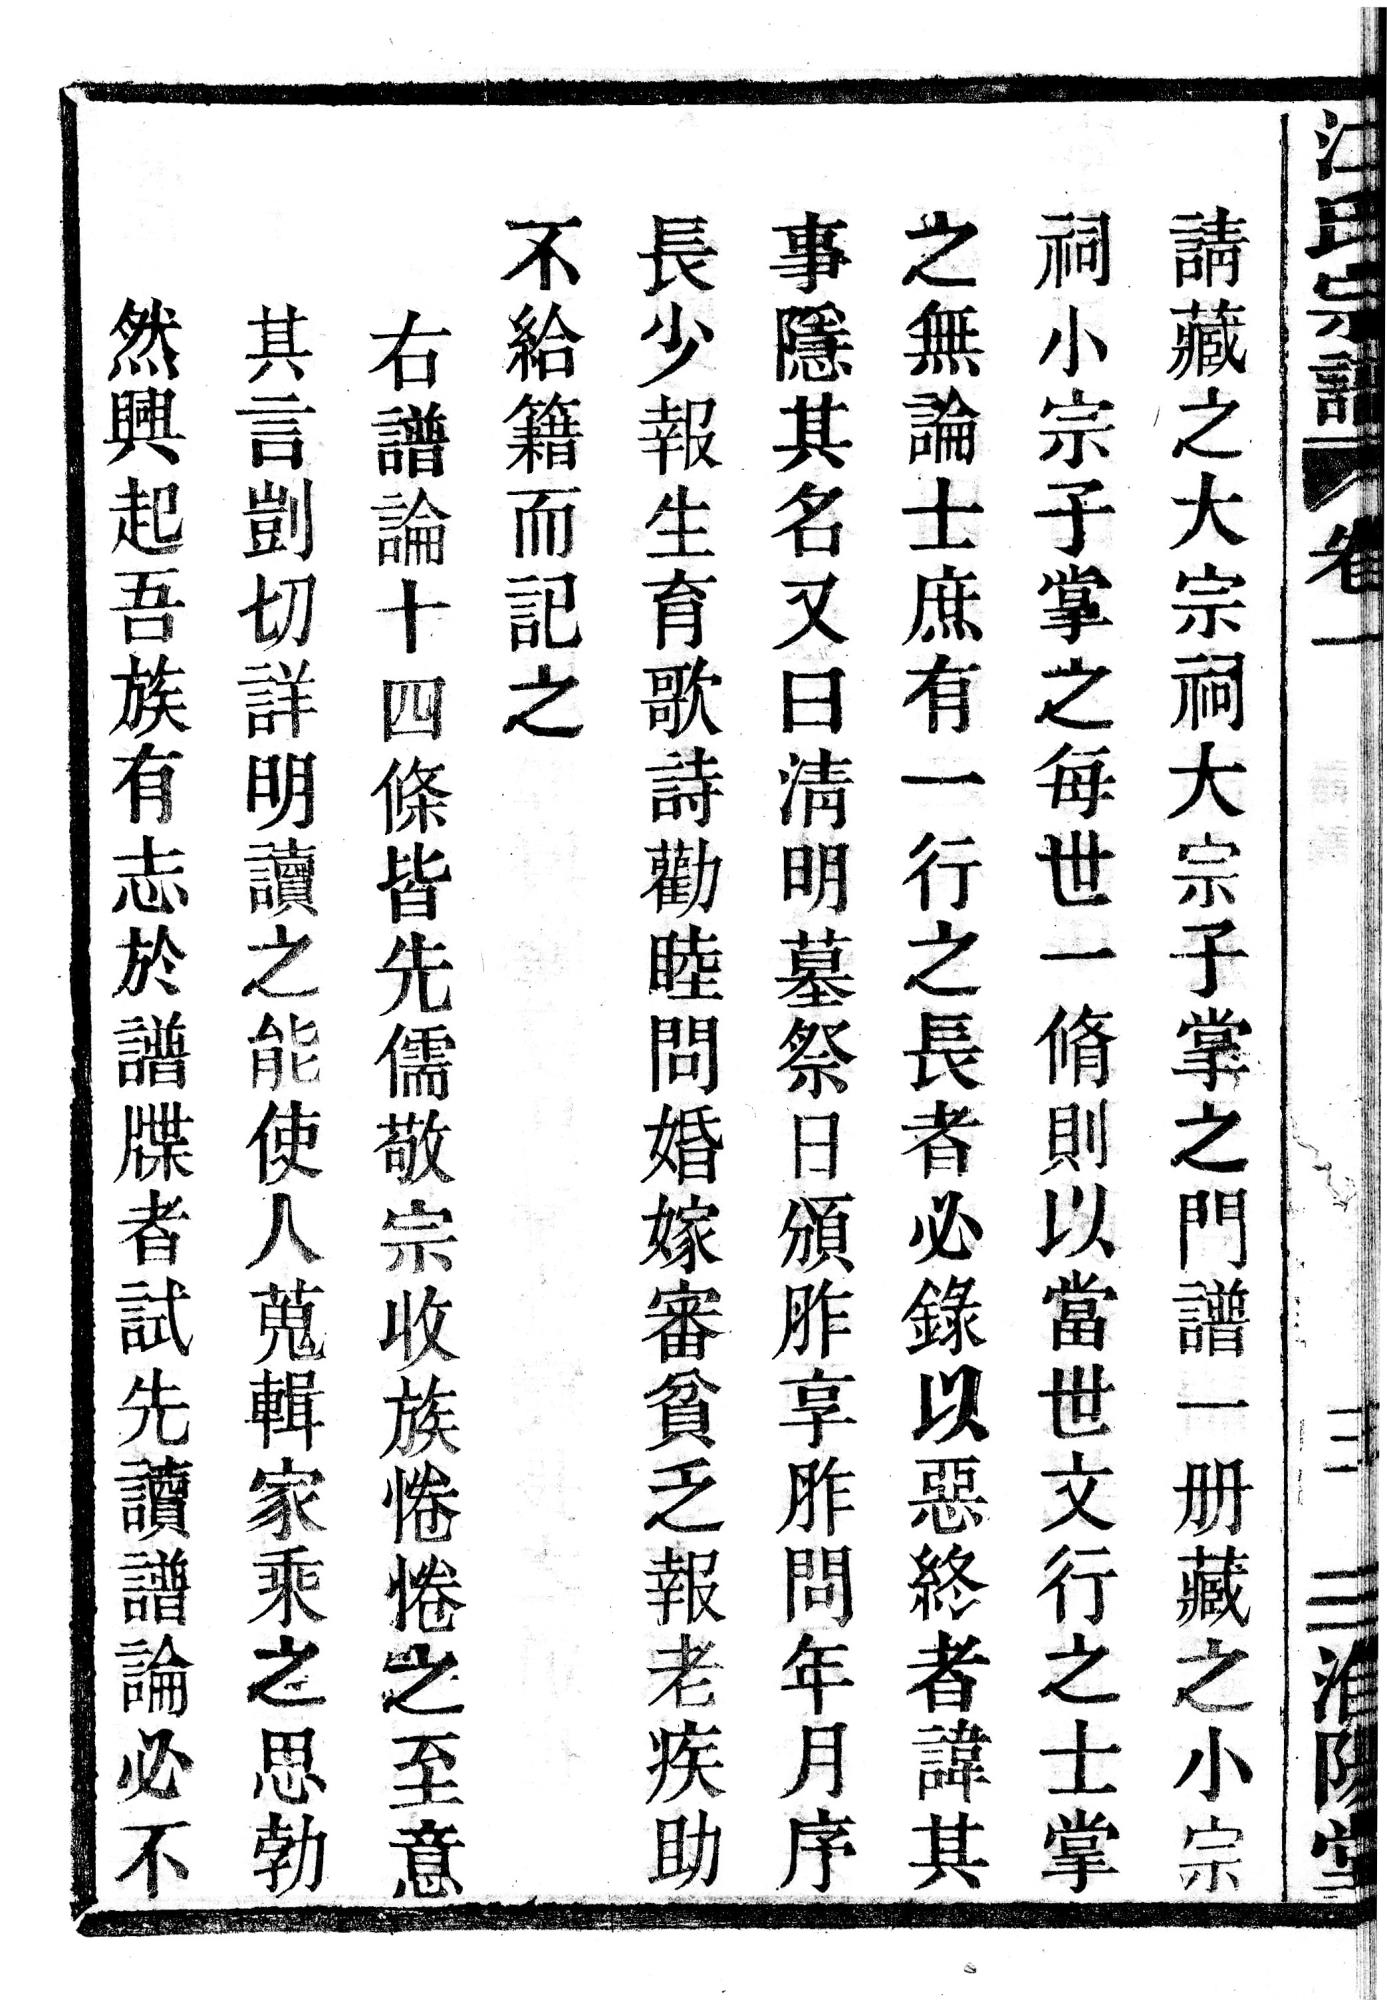 江氏宗譜 卷一 三 淮陽堂
請藏之大宗祠大宗子掌之門譜一册藏之小宗
祠小宗子掌之每世一脩則以當世文行之士掌
之無論士庶有一行之長者必錄以惡終者諱其
事隱其名又曰淸明墓祭日頒胙享胙問年月序
長少報生育歌詩勸睦問婚嫁審貧乏報老疾助
不給籍而記之
右譜論十四條皆先儒敬宗收族惓惓之至意
其言剴切詳明讀之能使人蒐輯家乘之思勃
然興起吾族有志於譜牒者試先讀譜論必不